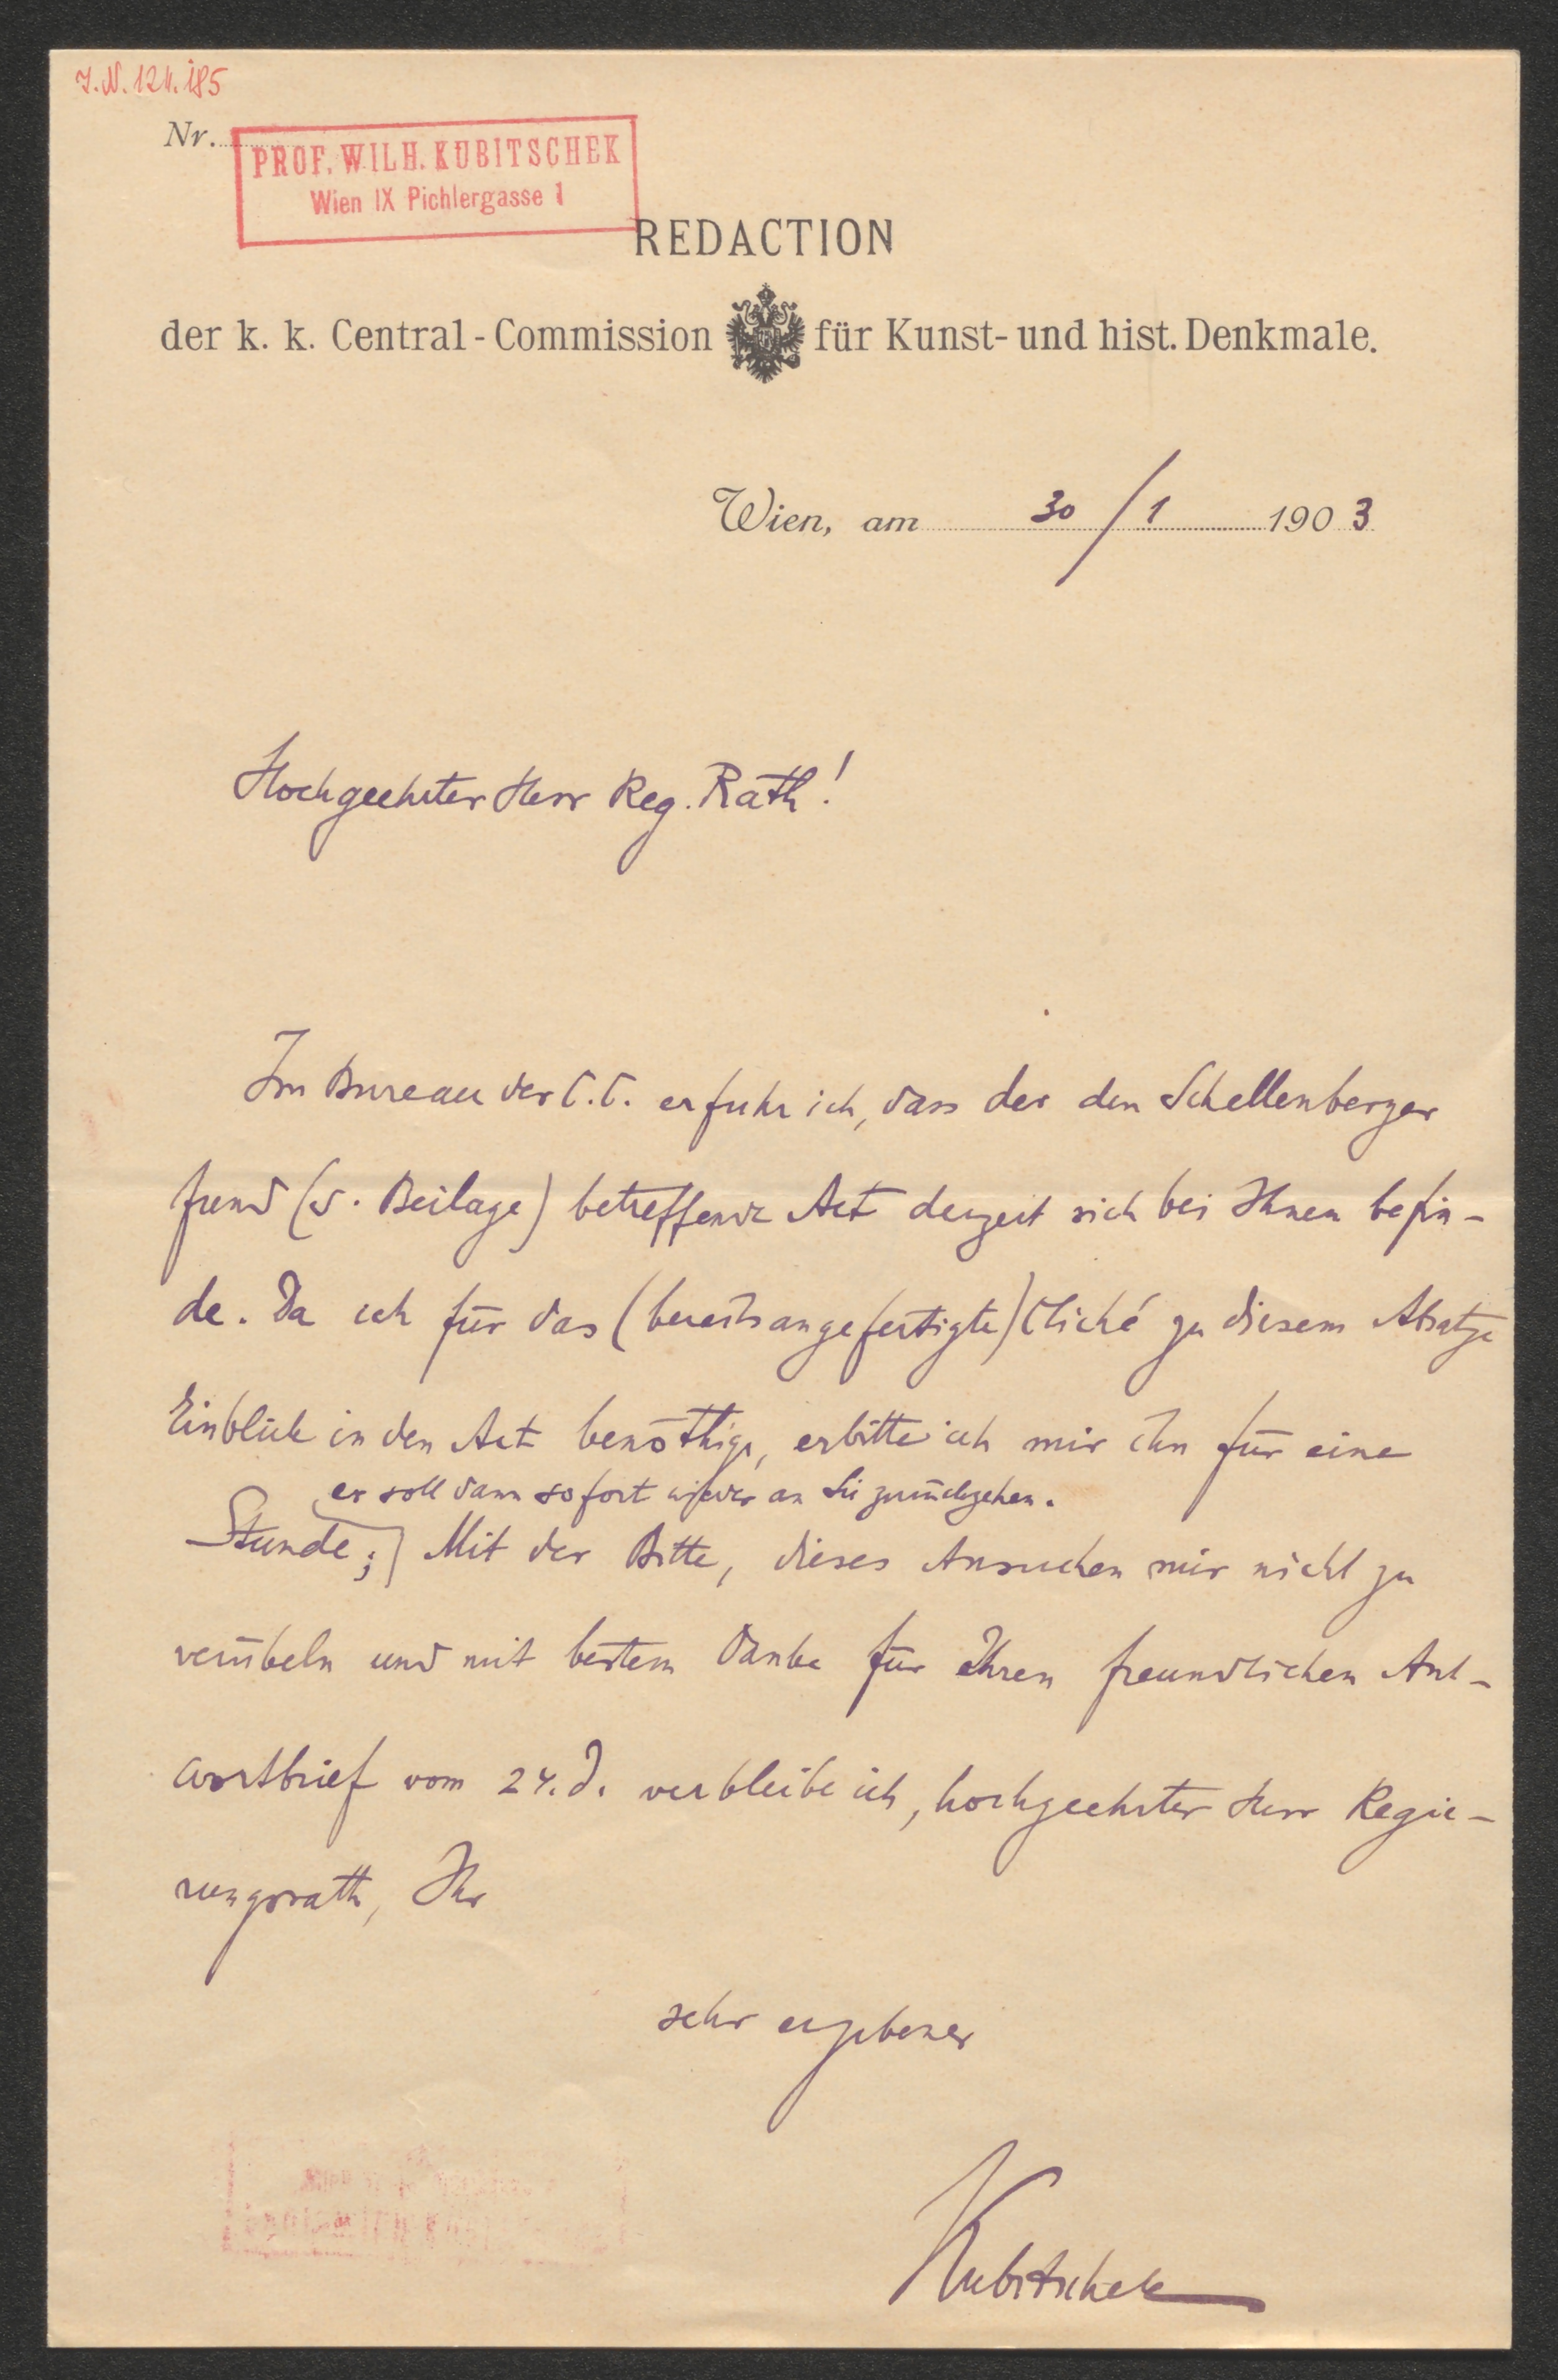 I.N. 124.185
Nr.
PROF. WILH. KUBITSCHEK
Wien IX Pichlergasse 1
REDACTION
der k. k. Central-Commission für Kunst- und hist. Denkmale.
Wien, am 30/1 1903
Hochgeehrter Herr Reg. Rath!
Im Bureau der C.C. erfuhr ich, dass der den Schellenberger
Fund (s. Beilage) betreffende Act derzeit sich bei Ihnen befin-
de. Da ich für das (bereits angefertigte) Cliché zu diesem Absatze
Einblick in den Act benöthige, erbitte ich mir ihn für eine
er soll dann sofort wieder an Sie zurückgehen.
Stunde; Mit der Bitte, dieses Ansuchen mir nicht zu
verübeln und mit bestem Danke für Ihren freundlichen Ant-
wortbrief vom 24. d. verbleibe ich, hochgeehrter Herr Regie-
rungsrath, Ihr
sehr ergebener
Kubitschek